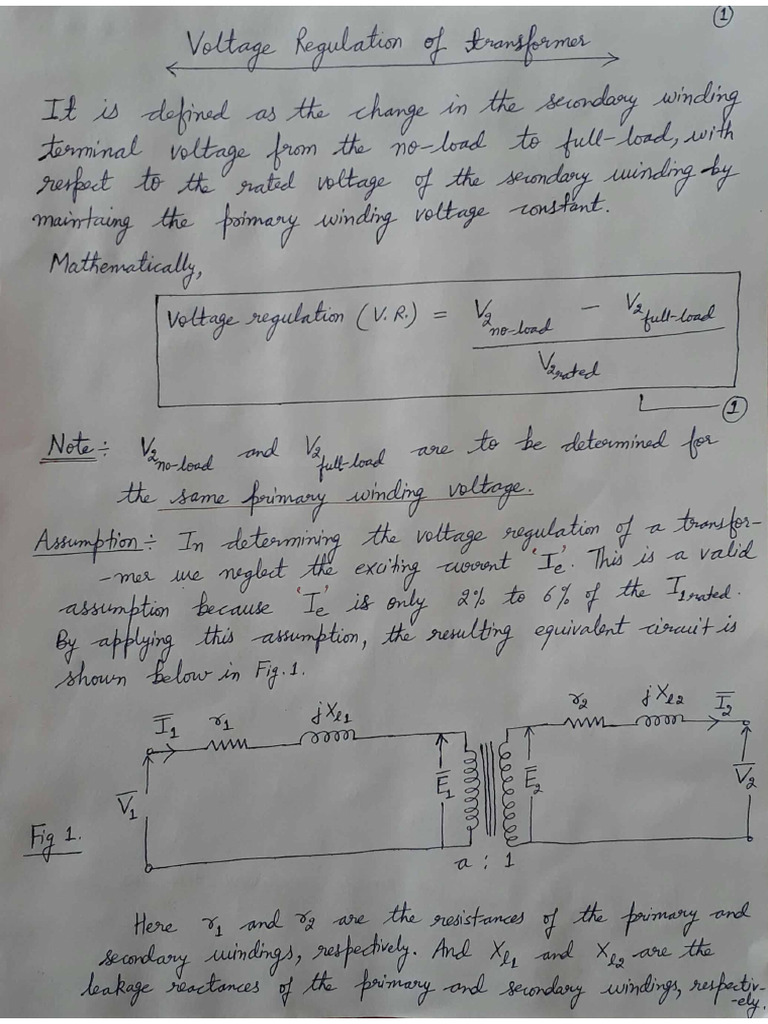 ①
Voltage Regulation of transformer
It is defined as the change in the secondary winding
terminal voltage from the no-load to full-load, with
respect to the rated voltage of the secondary winding by
maintaing the primary winding voltage constant.
Mathematically,
Voltage regulation (V.R.) = (V₂ no-load − V₂ full-load) / V₂ rated
①
Note :- V₂ no-load and V₂ full-load are to be determined for
the same primary winding voltage.
Assumption :- In determining the voltage regulation of a transfor-
-mer we neglect the exciting current 'Ie'. This is a valid
assumption because 'Ie' is only 2% to 6% of the I1rated.
By applying this assumption, the resulting equivalent circuit is
shown below in Fig. 1.
I̅₁ r₁ jXl1 r₂ jXl2 I̅₂
V̅₁ E̅₁ E̅₂ V̅₂
Fig 1.
a : 1
Here r₁ and r₂ are the resistances of the primary and
secondary windings, respectively. And Xl1 and Xl2 are the
leakage reactances of the primary and secondary windings, respectiv-
-ely.